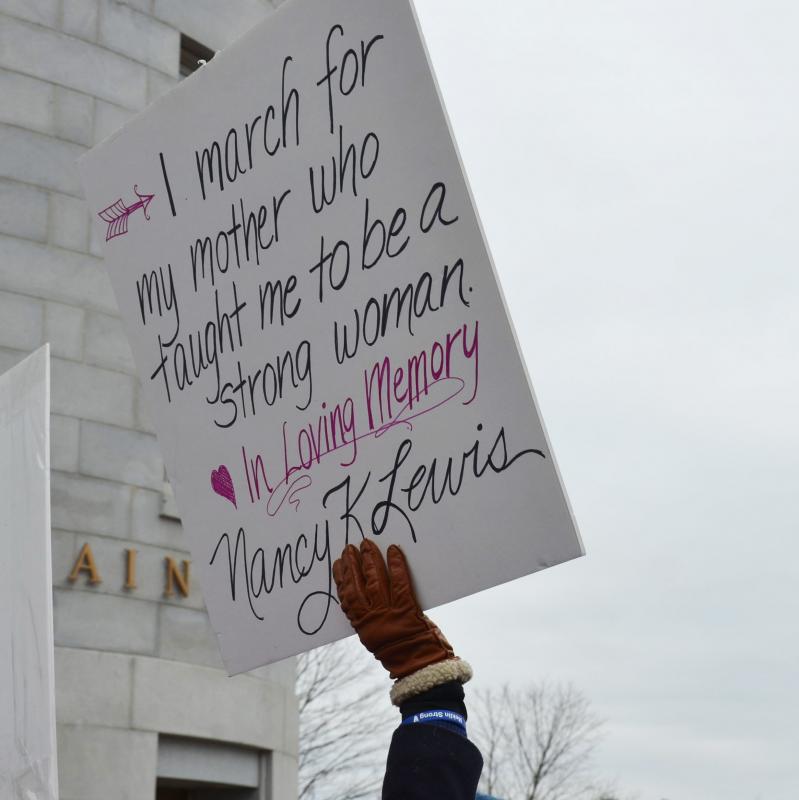 I march for
my mother who
taught me to be a
strong woman.
In Loving Memory
Nancy K Lewis
AIN
Strong